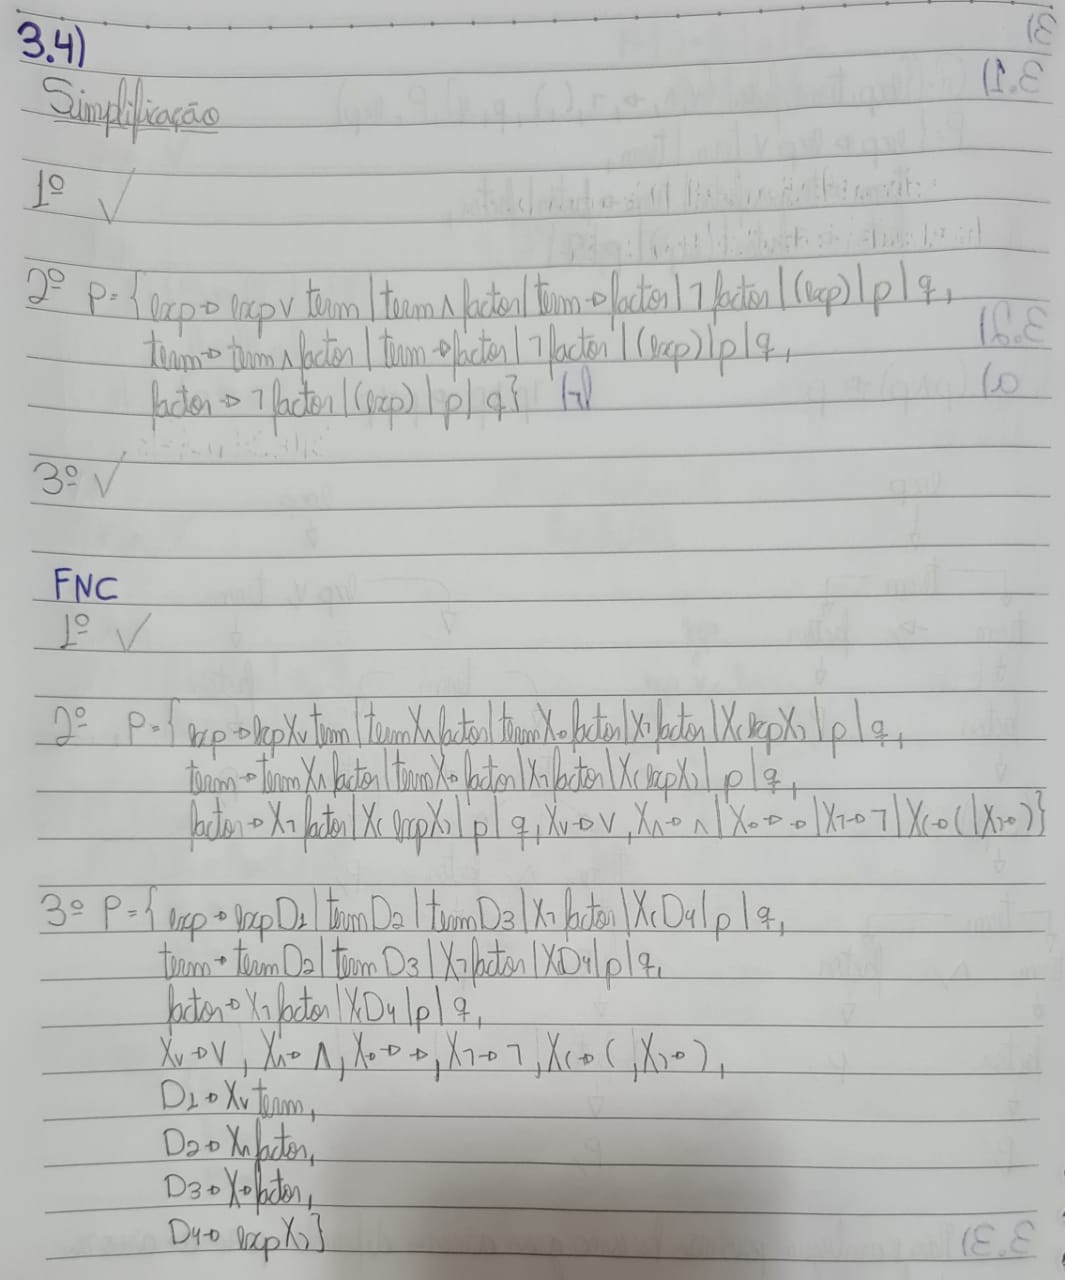 3.4)
Simplificação
1º ✓
2º P={exp→exp∨term|term∧factor|term→factor|¬factor|(exp)|p|q,
term→term∧factor|term→factor|¬factor|(exp)|p|q,
factor→¬factor|(exp)|p|q}
3º ✓
FNC
1º ✓
2º P={exp→expX∨term|termX∧factor|termX→factor|X¬factor|X(expX)|p|q,
term→termX∧factor|termX→factor|X¬factor|X(expX)|p|q,
factor→X¬factor|X(expX)|p|q,X∨→∨,X∧→∧|X→→→|X¬→¬|X(→(|X)→)}
3º P={exp→expD1|termD2|termD3|X¬factor|X(D4|p|q,
term→termD2|termD3|X¬factor|XD4|p|q,
factor→X¬factor|XD4|p|q,
X∨→∨,X∧→∧,X→→→,X¬→¬,X(→(,X)→),
D1→X∨term,
D2→X∧factor,
D3→X→factor,
D4→expX)}
3)
3.1)
3.2)
a)
3.3)